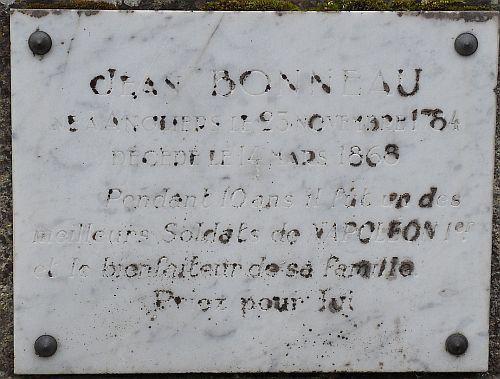 JEAN BONNEAU
NE A ANGLIERS LE 23 NOVEMBRE 1784
DECEDE LE 14 MARS 1868
Pendant 10 ans il fut un des
meilleurs Soldats de NAPOLEON 1er
et le bienfaiteur de sa famille
Priez pour lui